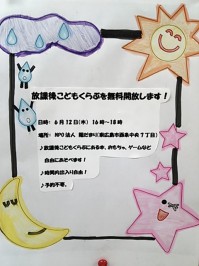 放課後こどもくらぶを無料開放します！
日時：6月12日(水) 16時～18時
場所：NPO法人 陽だまり(東広島市西条中央7丁目)
♪放課後こどもくらぶにある本、おもちゃ、ゲームなど
自由にあそべます！
♪時間内出入り自由！
♪予約不要。